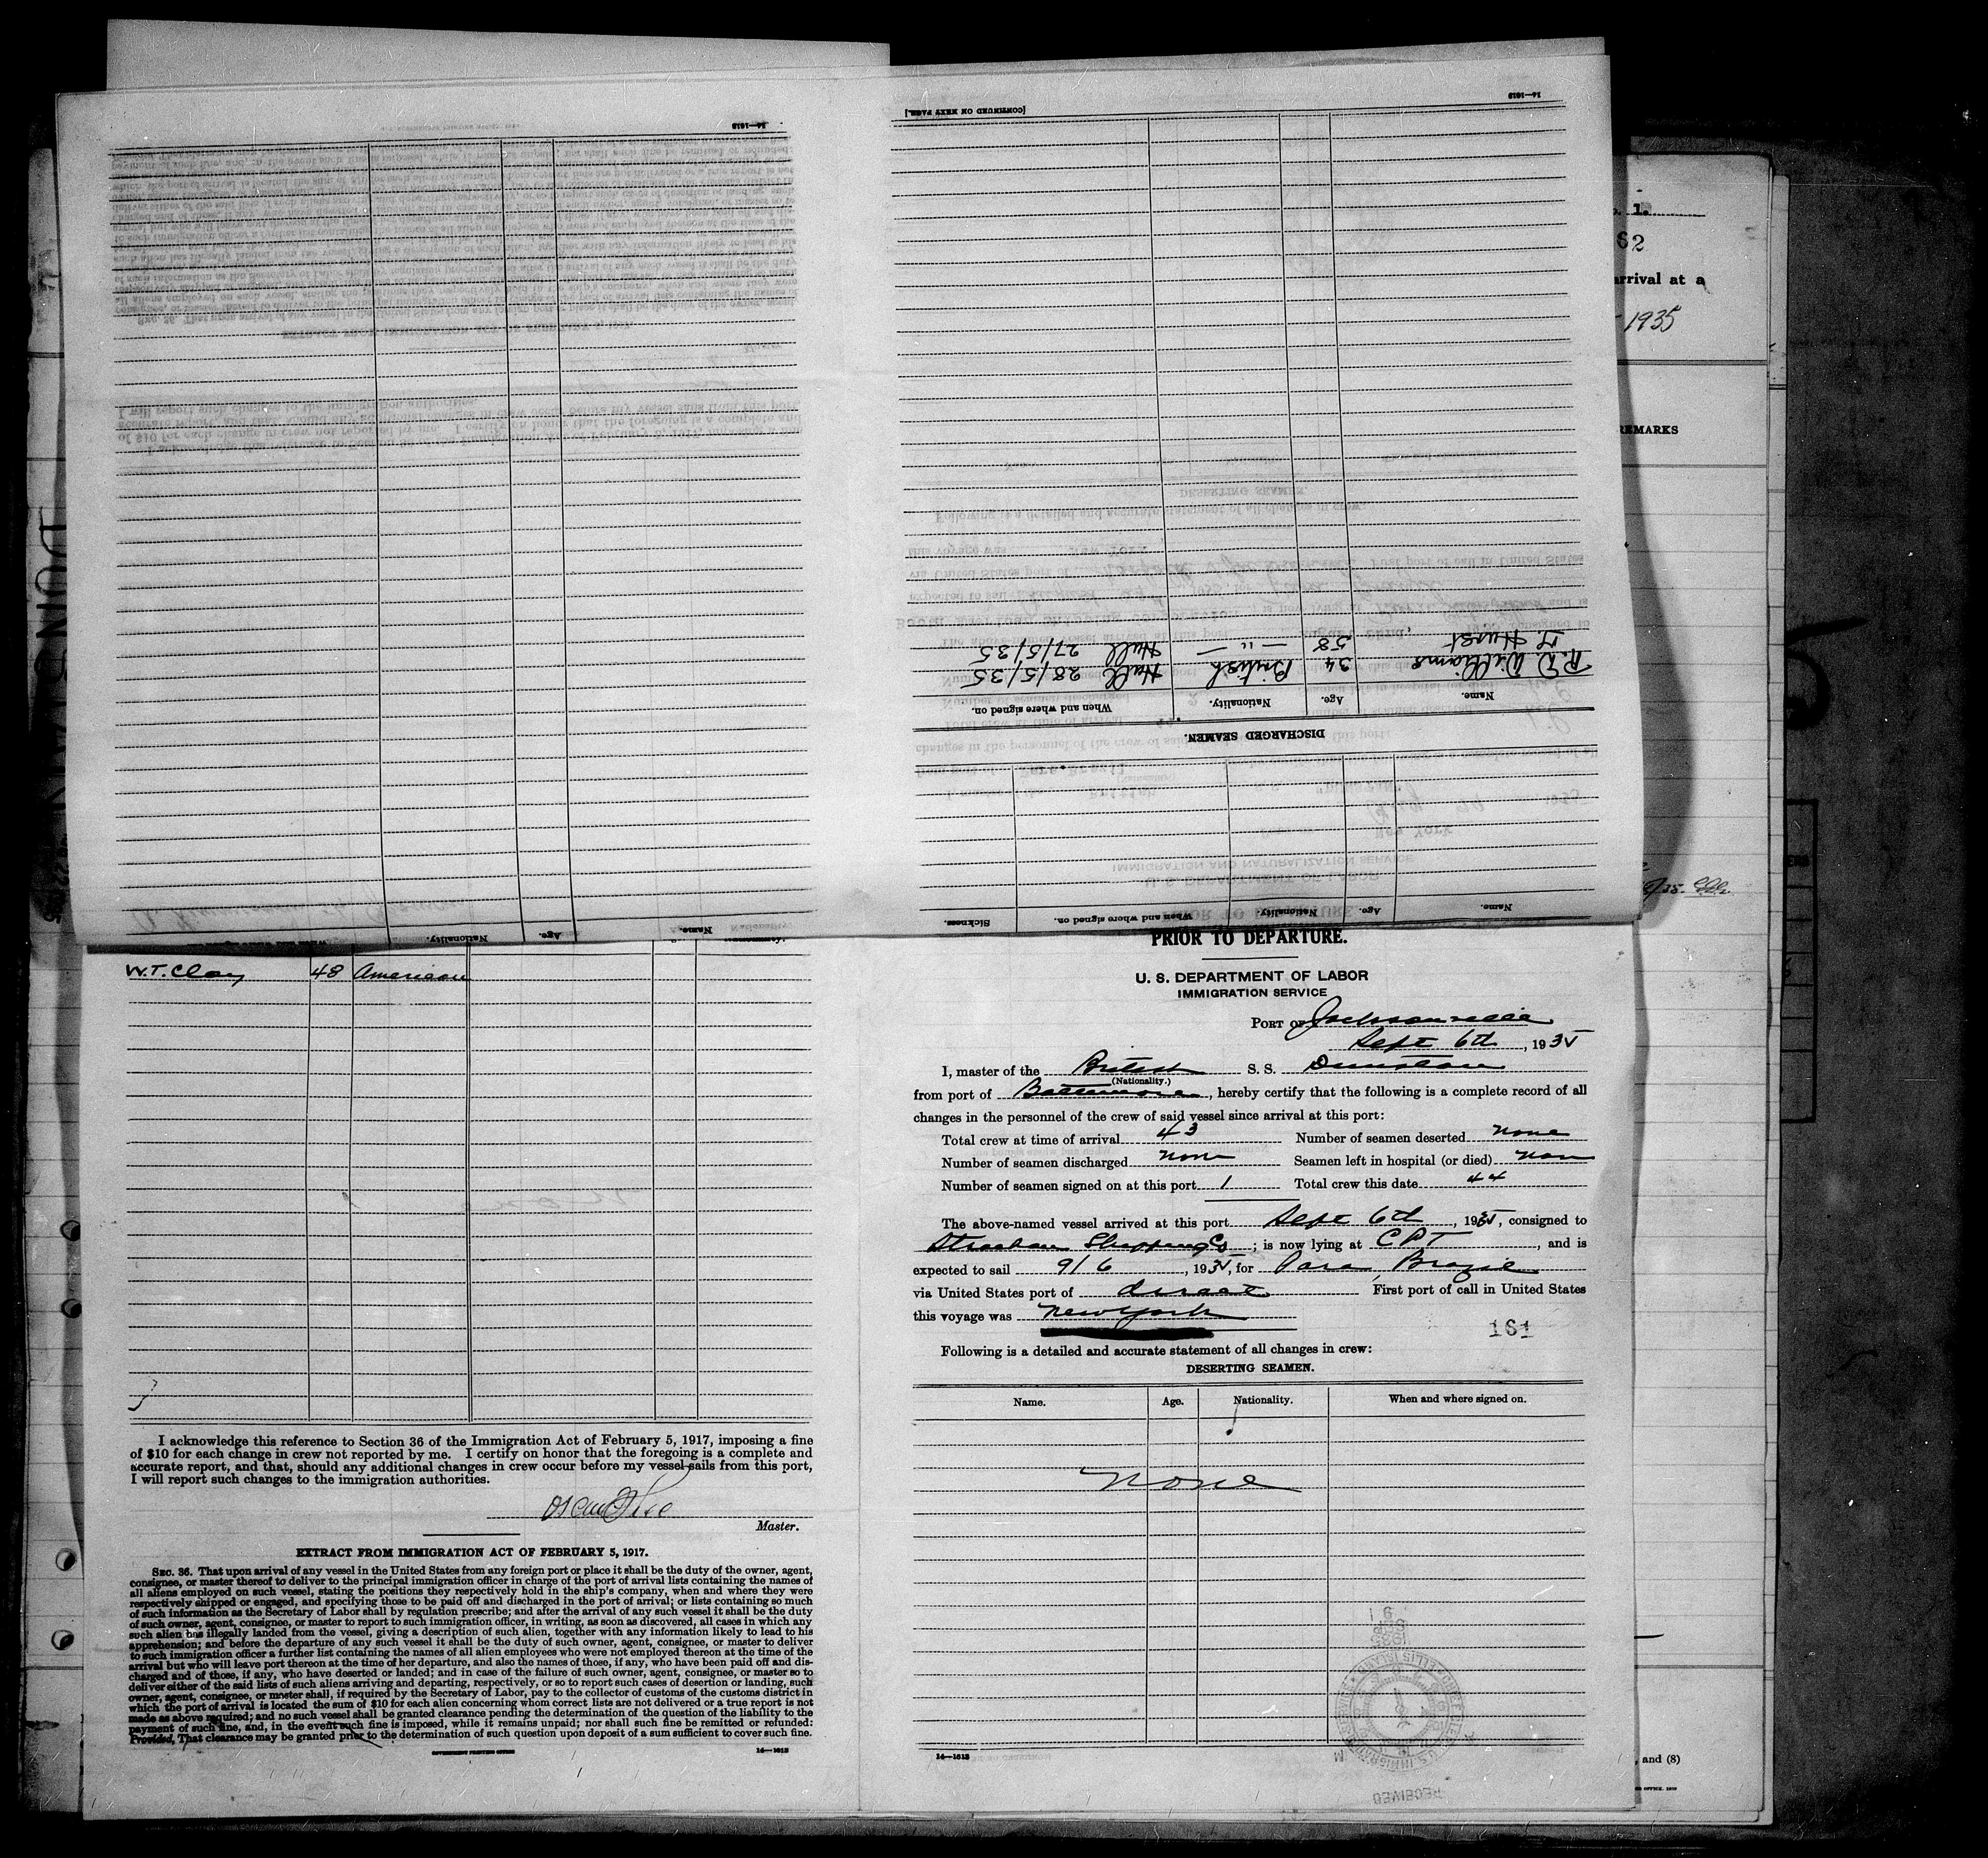 14—1613
[CONTINUED ON NEXT PAGE.]
14—1613
DISCHARGED SEAMEN.
Name. Age. Nationality. When and where signed on.
R.D. Williams 34 British Hull 28/5/35
T. Hurst 58 — " — Hull 27/5/35
Name. Age. Nationality. When and where signed on. Sickness.
Name. Age. Nationality.
. 1.
62
arrival at a
1935
REMARKS
W.T. Clay 48 American
I acknowledge this reference to Section 36 of the Immigration Act of February 5, 1917, imposing a fine
of $10 for each change in crew not reported by me. I certify on honor that the foregoing is a complete and
accurate report, and that, should any additional changes in crew occur before my vessel sails from this port,
I will report such changes to the immigration authorities.
Master.
EXTRACT FROM IMMIGRATION ACT OF FEBRUARY 5, 1917.
SEC. 36. That upon arrival of any vessel in the United States from any foreign port or place it shall be the duty of the owner, agent,
consignee, or master thereof to deliver to the principal immigration officer in charge of the port of arrival lists containing the names of
all aliens employed on such vessel, stating the positions they respectively hold in the ship's company, when and where they were
respectively shipped or engaged, and specifying those to be paid off and discharged in the port of arrival; or lists containing so much
of such information as the Secretary of Labor shall by regulation prescribe; and after the arrival of any such vessel it shall be the duty
of such owner, agent, consignee, or master to report to such immigration officer, in writing, as soon as discovered, all cases in which any
such alien has illegally landed from the vessel, giving a description of such alien, together with any information likely to lead to his
apprehension; and before the departure of any such vessel it shall be the duty of such owner, agent, consignee, or master to deliver
to such immigration officer a further list containing the names of all alien employees who were not employed thereon at the time of the
arrival but who will leave port thereon at the time of her departure, and also the names of those, if any, who have been paid off and dis-
charged and of those, if any, who have deserted or landed; and in case of the failure of such owner, agent, consignee, or master so to
deliver either of the said lists of such aliens arriving and departing, respectively, or so to report such cases of desertion or landing, such
owner, agent, consignee, or master shall, if required by the Secretary of Labor, pay to the collector of customs of the customs district in
which the port of arrival is located the sum of $10 for each alien concerning whom correct lists are not delivered or a true report is not
made as above required; and no such vessel shall be granted clearance pending the determination of the question of the liability to the
payment of such fine, and, in the event such fine is imposed, while it remains unpaid; nor shall such fine be remitted or refunded:
Provided, That clearance may be granted prior to the determination of such question upon deposit of a sum sufficient to cover such fine.
GOVERNMENT PRINTING OFFICE 14—1613
PRIOR TO DEPARTURE.
U. S. DEPARTMENT OF LABOR
IMMIGRATION SERVICE
PORT OF Jacksonville
Sept 6th, 1935
I, master of the British S. S. Dunstan
(Nationality.)
from port of Baltimore, hereby certify that the following is a complete record of all
changes in the personnel of the crew of said vessel since arrival at this port:
Total crew at time of arrival 43 Number of seamen deserted none
Number of seamen discharged none Seamen left in hospital (or died) none
Number of seamen signed on at this port 1 Total crew this date 44
The above-named vessel arrived at this port Sept 6th, 1935, consigned to
Strachan Shipping Co; is now lying at CPT, and is
expected to sail 9/6, 1935, for Para, Brazil
via United States port of direct First port of call in United States
this voyage was New York
161
Following is a detailed and accurate statement of all changes in crew:
DESERTING SEAMEN.
Name. Age. Nationality. When and where signed on.
none
14—1613
RECEIVED
, and (8)